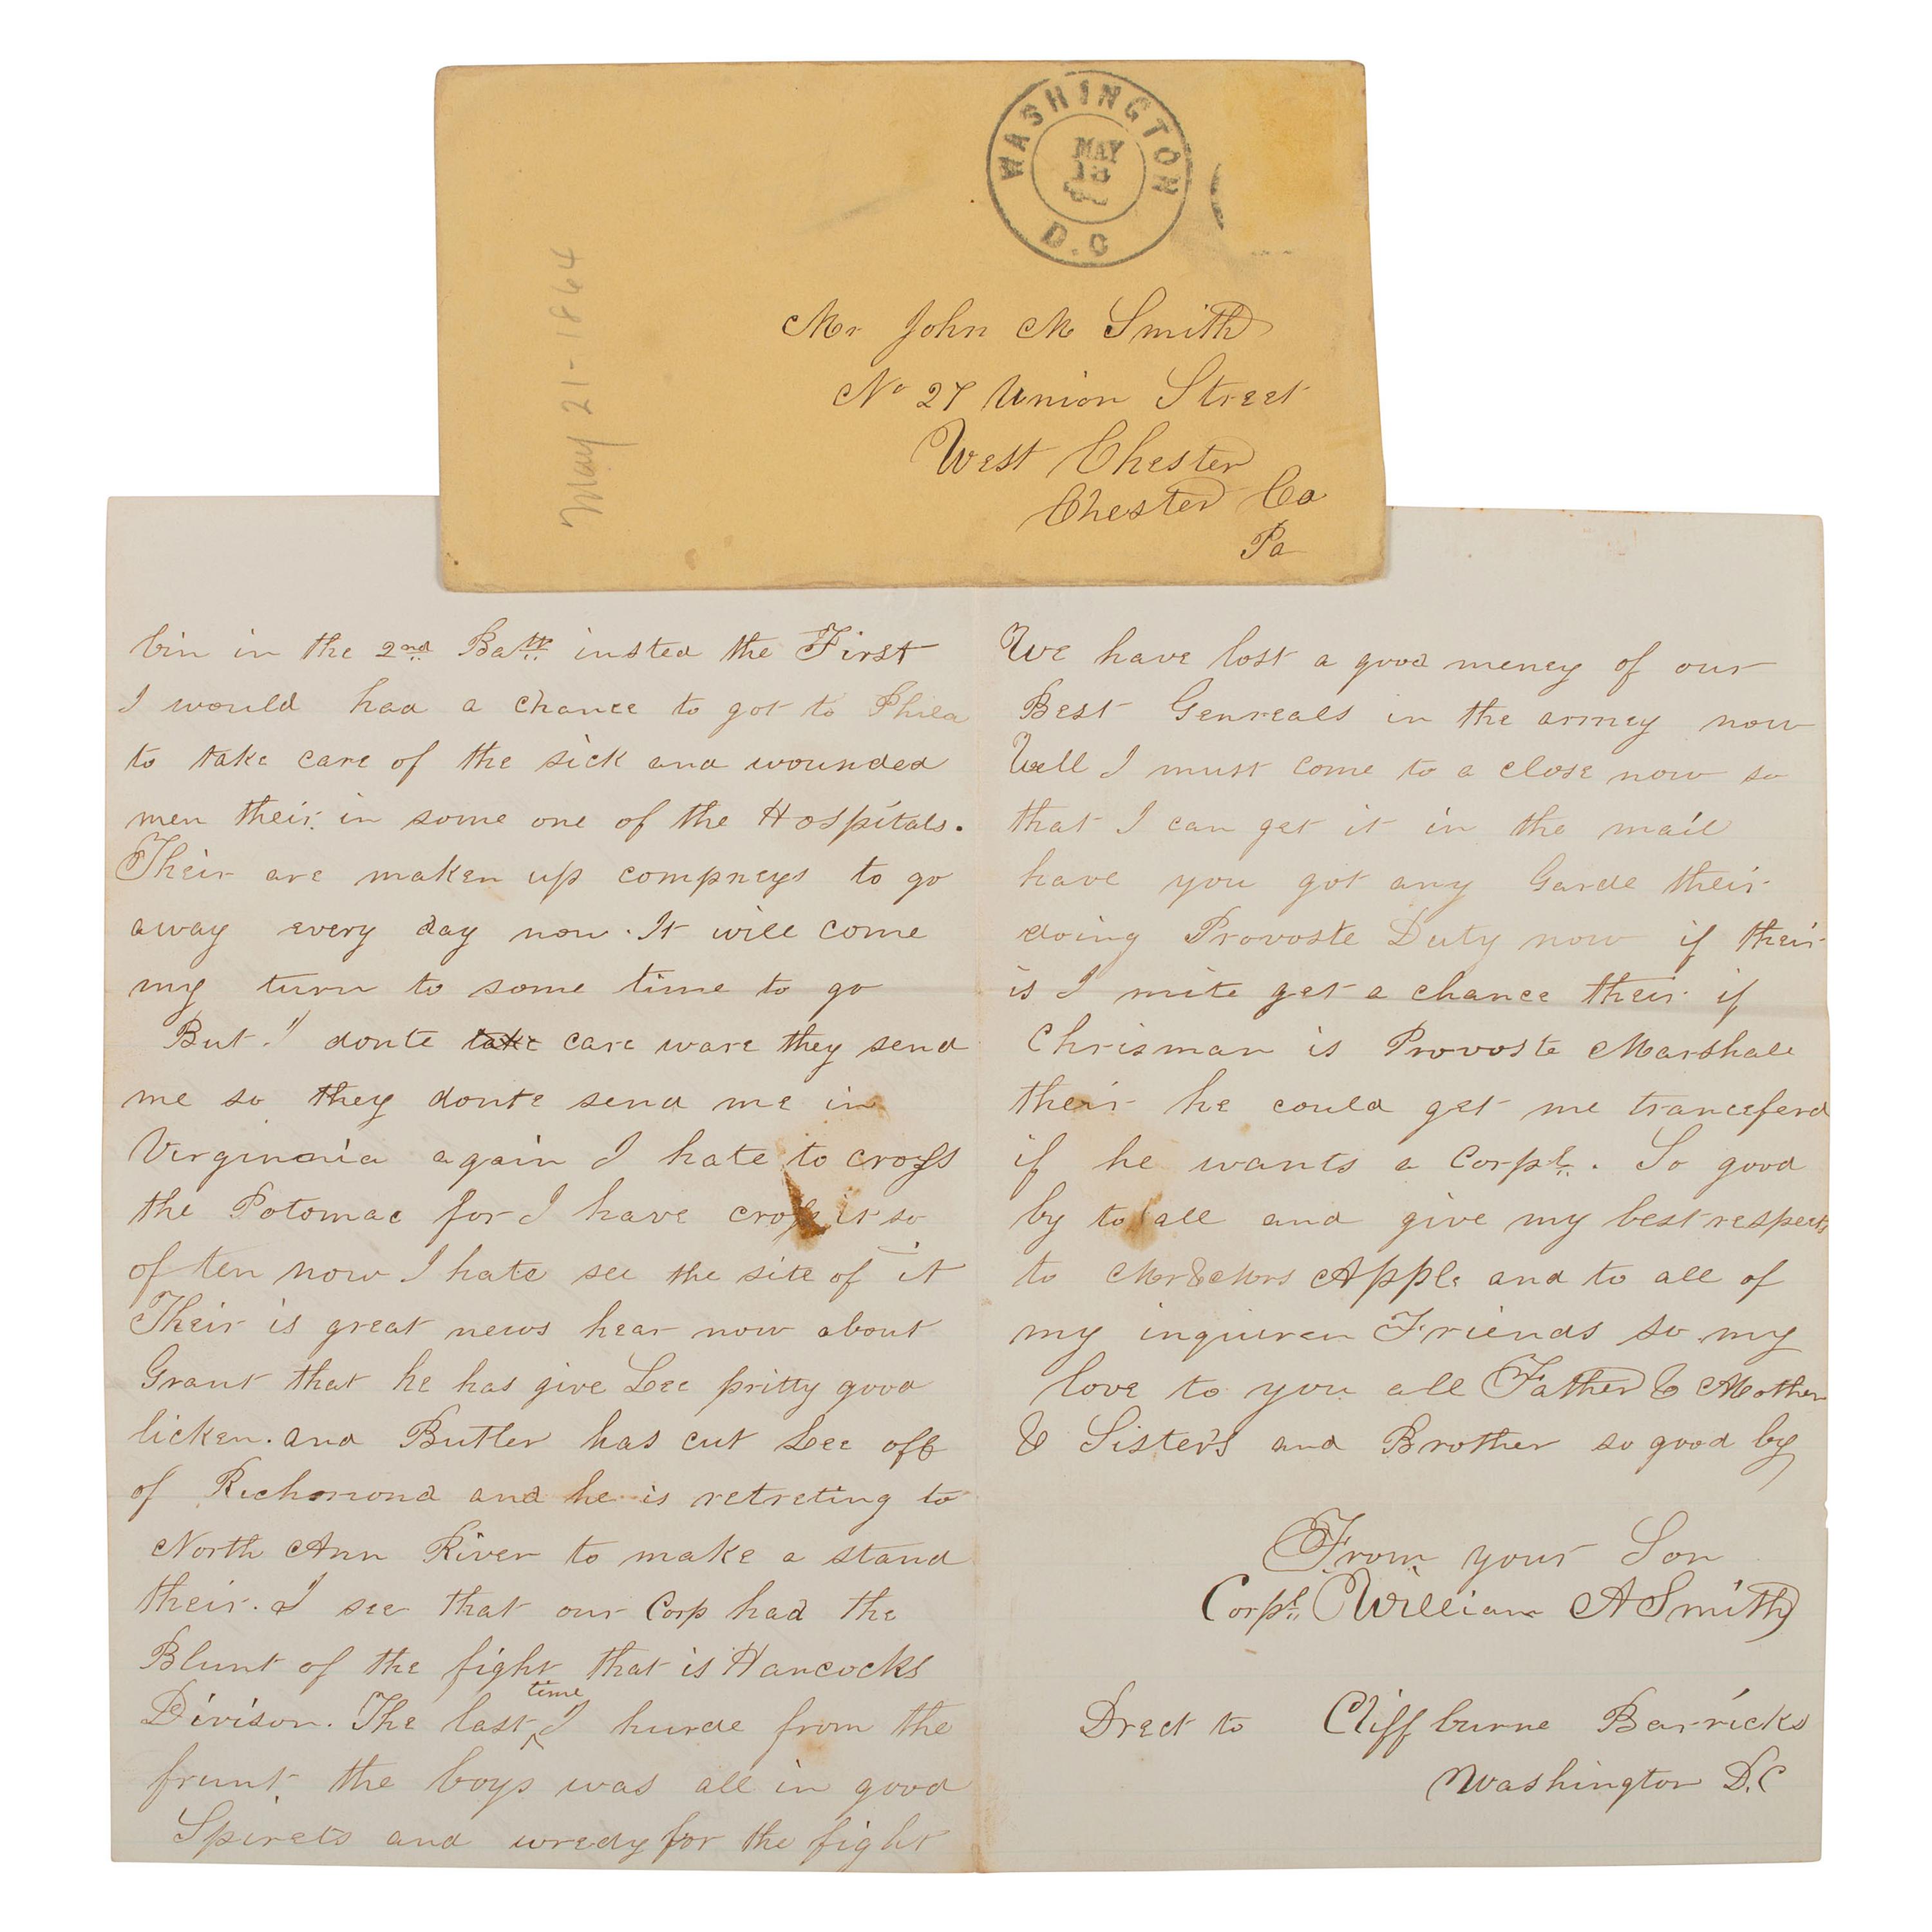 WASHINGTON
MAY
18
D.C
May 21-1864
Mr John M Smith
No 27 Union Street
West Chester
Chester Co
Pa
bin in the 2nd Batt insted the First
I would had a chance to got to Phila
to take care of the sick and wounded
men their in some one of the Hospitals.
Their are maken up compneys to go
away every day now. It will come
my turn to some time to go
But I donte take care ware they send
me so they donte send me in
Virgininia again I hate to cross
the Potomac for I have it so
often now I hate see the site of it
Their is great news hear now about
Grant that he has give Lee pritty good
licken. and Butler has cut Lee off
of Richmond and he is retreting to
North Ann River to make a stand
their. I see that our Corp had the
Blunt of the fight that is Hancocks
Divison. The last time I hurde from the
frunt the boys was all in good
Spirets and wredy for the fight
We have lost a good meney of our
Best Genreals in the armey now
Well I must come to a close now so
that I can get it in the mail
have you got any Garde their
doing Provoste Duty now if their
is I mite get a chance their if
Chrisman is Provoste Marshall
their he could get me tranceferd
if he wants a Corpl. So good
by to all and give my best respects
to Mr & Mrs Apple and to all of
my inquiren Friends so my
love to you all Father & Mother
& Sisters and Brother so good by
From your Son
Corpl. William A Smith
Drect to Cliffburne Barricks
Washington D.C